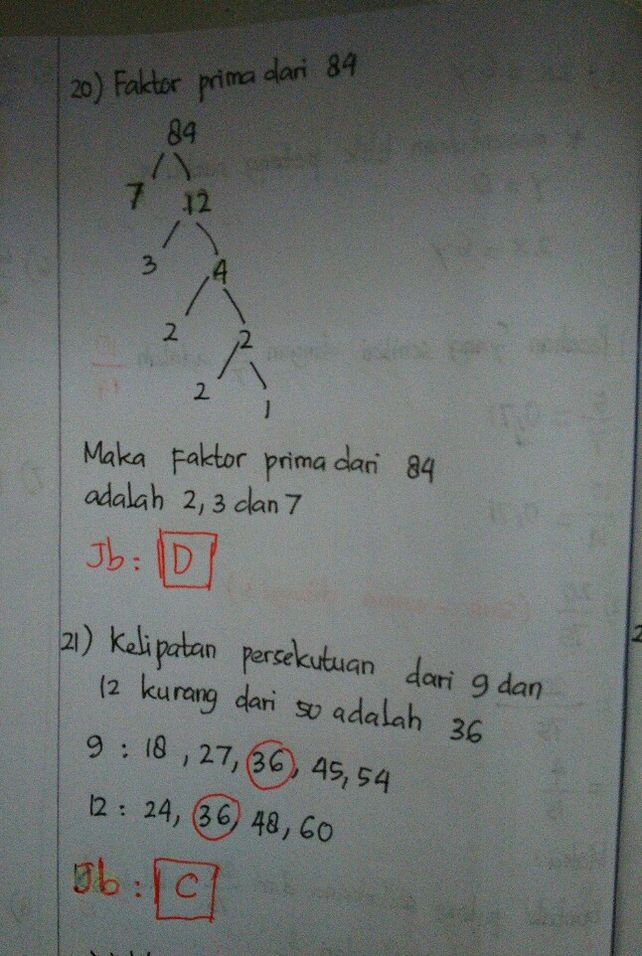 20) Faktor prima dari 84
84
7 12
3 4
2 2
2 1
Maka Faktor prima dari 84
adalah 2, 3 dan 7
Jb : D
21) Kelipatan persekutuan dari 9 dan
12 kurang dari 50 adalah 36
9 : 18, 27, 36, 45, 54
12 : 24, 36, 48, 60
Jb : C